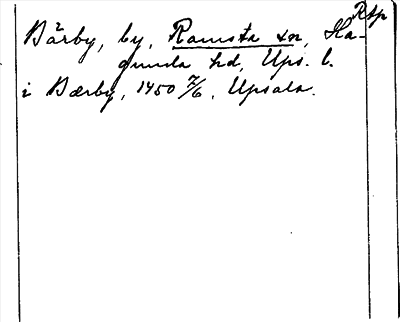 Rtp
Bärby, by, Ramsta sn, Ha-
gunda hd, Ups. l.
i Bærby, 1450 7/6, Upsala.